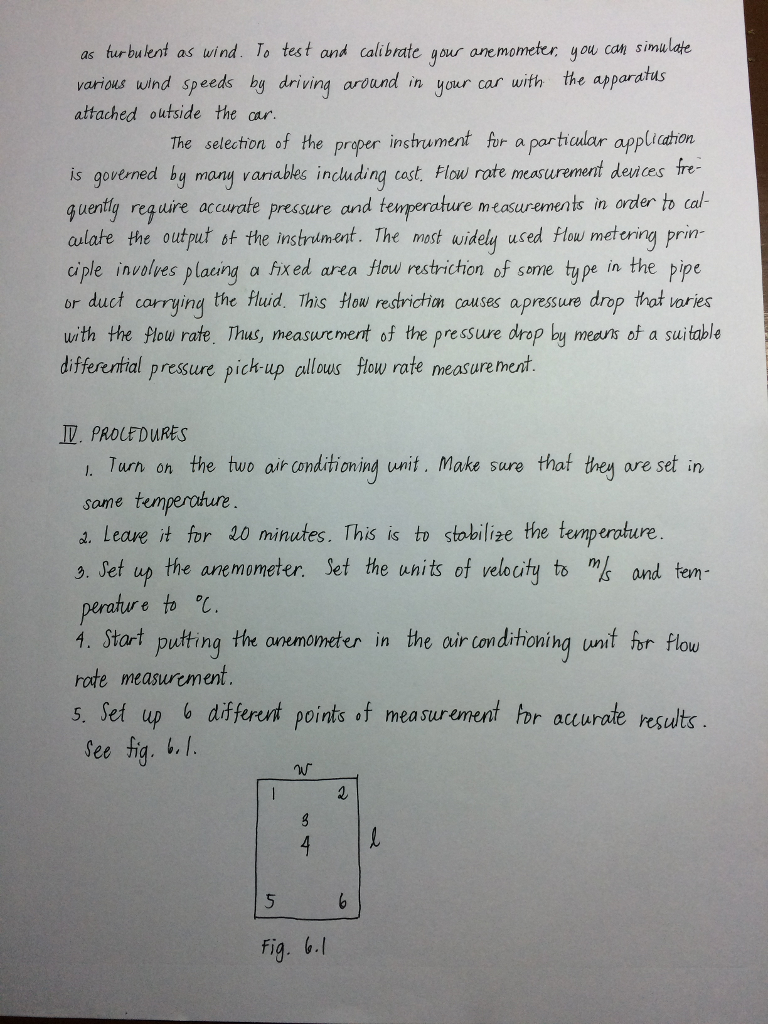 as turbulent as wind. To test and calibrate your anemometer, you can simulate
various wind speeds by driving around in your car with the apparatus
attached outside the car.
The selection of the proper instrument for a particular application
is governed by many variables including cost. Flow rate measurement devices fre-
quently require accurate pressure and temperature measurements in order to cal-
culate the output of the instrument. The most widely used flow metering prin-
ciple involves placing a fixed area flow restriction of some type in the pipe
or duct carrying the fluid. This flow restriction causes a pressure drop that varies
with the flow rate. Thus, measurement of the pressure drop by means of a suitable
differential pressure pick-up allows flow rate measurement.
IV. PROCEDURES
1. Turn on the two air conditioning unit. Make sure that they are set in
same temperature.
2. Leave it for 20 minutes. This is to stabilize the temperature.
3. Set up the anemometer. Set the units of velocity to m/s and tem-
perature to °C.
4. Start putting the anemometer in the air conditioning unit for flow
rate measurement.
5. Set up 6 different points of measurement for accurate results.
See fig. 6.1.
w
1 2
3
4 l
5 6
Fig. 6.1